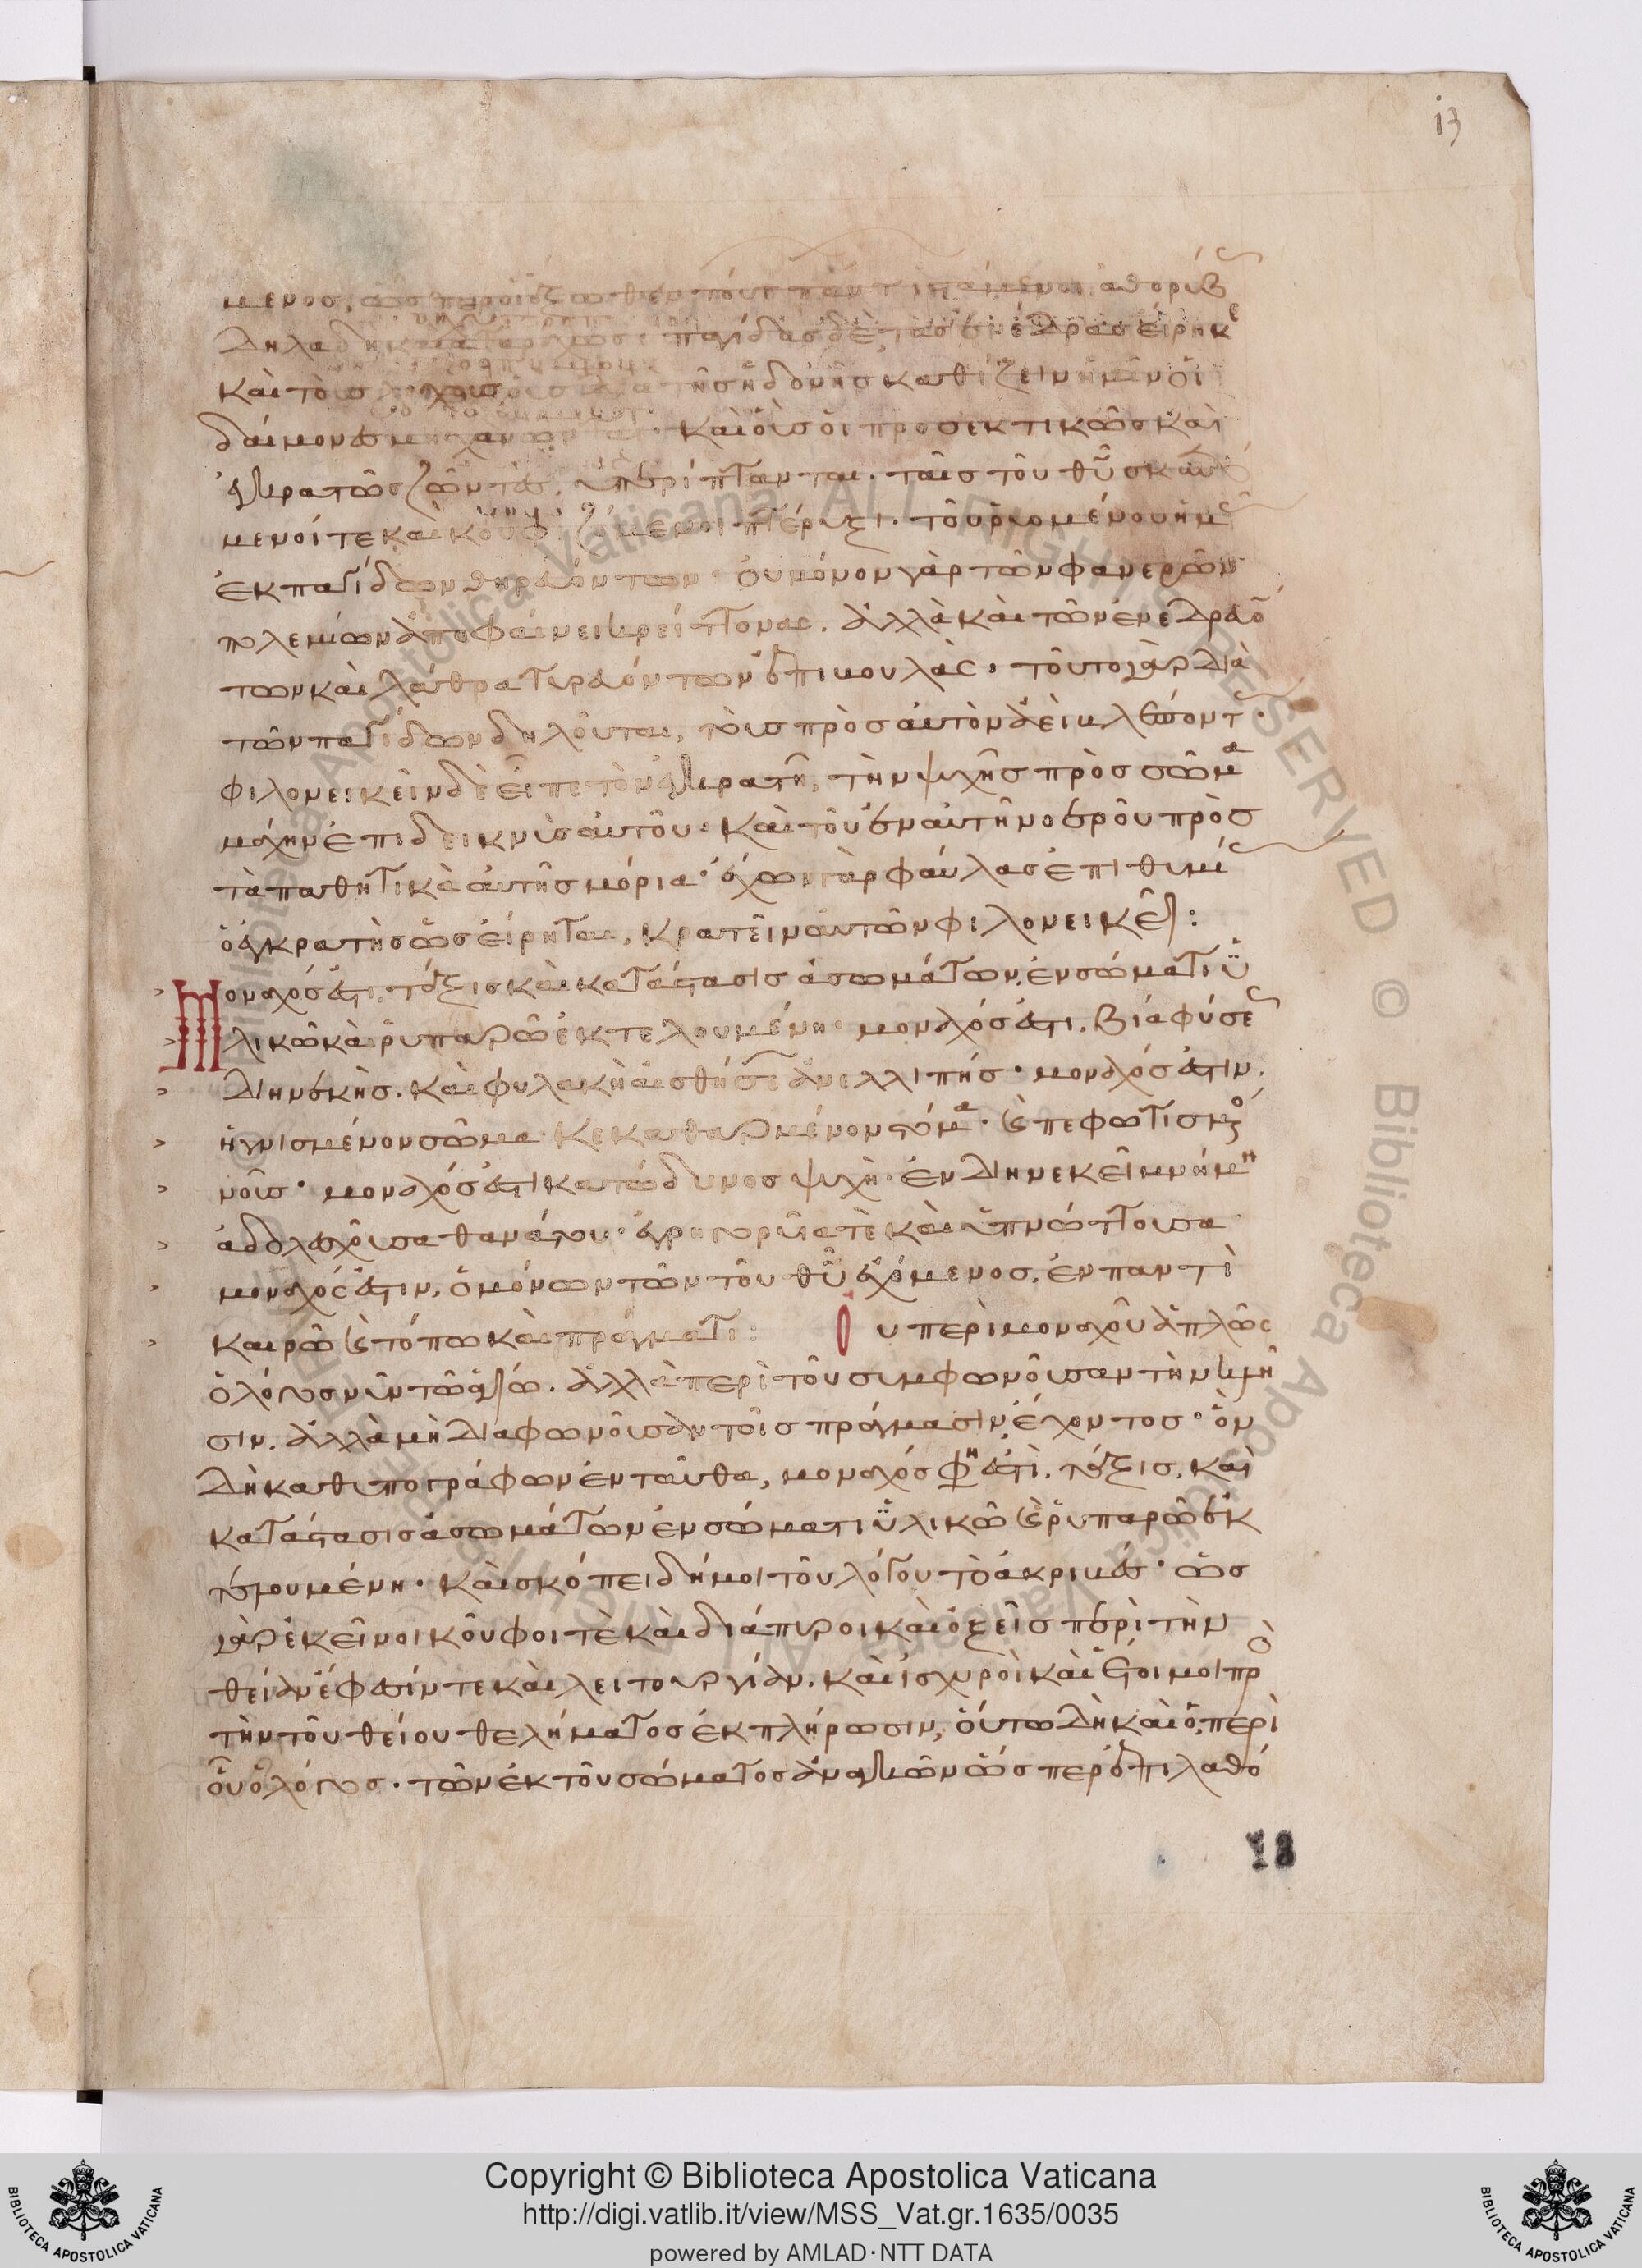 13
μενος,
δηλαδὴ παγίδας δὲ τὰς ἐνέδρας εἴρηκε
καὶ τοὺς τῆς ἡδονῆς καθίζειν ἡμῖν οἱ
δαίμονες καὶ οὓς οἱ προσεκτικῶς καὶ
ἐγκρατῶς ζῶντες. περιίπτανται. ταῖς τοῦ θῦ
μενοί τε καὶ πτέρυξι. τοῦ ῥυομένου ἡμᾶς
ἐκ παγίδων θηρευόντων· οὐ μόνον γὰρ τῶν φανερῶν
πολεμίων ἀποφαίνει κρείττονας. ἀλλὰ καὶ τῶν ἐνεδρευό
των καὶ λάθρα τυρευόντων ἐπιβουλάς· τοῦτο γὰρ διὰ
τῶν παγίδων δηλοῦται, τοῖς πρὸς αὐτὸν ἀεὶ βλέπουσι.
φιλονεικεῖν δὲ εἶπε τὸν ἐγκρατῆ, τὴν ψυχῆς πρὸς σῶμα
μάχην ἐπιδεικνὺς αὐτοῦ· καὶ τοῦ ἐν αὐτῇ νοεροῦ πρὸς
τὰ παθητικὰ αὐτῆς μόρια· ἔχων γὰρ φαύλας ἐπιθυμί
ὁ ἐγκρατὴς ὡς εἴρηται, κρατεῖν αὐτῶν φιλονεικεῖ:
Μοναχός ἐστι, τάξις καὶ κατάστασις ἀσωμάτων, ἐν σώματι ὑ
λικῶ καὶ ῥυπαρῶ ἐκτελουμένη· μοναχός ἐστι. βία φύσεως
διηνεκὴς. καὶ φυλακὴ αἰσθήσεων ἀνελλιπής· μοναχός ἐστιν.
ἡγνισμένον σῶμα· κεκαθαρμένον στόμα· καὶ πεφωτισμένος
νοῦς· μοναχός ἐστι κατώδυνος ψυχὴ· ἐν διηνεκεῖ μνήμη
ἀδολεσχοῦσα θανάτου· ἐγρηγορυῖα τὲ καὶ ὑπνώττουσα
μοναχός ἐστιν, ὁ μόνων τῶν τοῦ θῦ ἐχόμενος. ἐν παντὶ
καιρῶ καὶ τόπω καὶ πράγματι: Οὐ περὶ μοναχοῦ ἁπλῶς
ὁ λόγος νῦν τῶ ἁγίω. ἀλλὰ περὶ τοῦ συμφωνοῦσαν τὴν κλῆ
σιν. ἀλλὰ μὴ διαφωνοῦσαν τοῖς πράγμασιν, ἔχοντος· ὃν
δὴ καθυπογράφων ἐνταῦθα, μοναχός φησιν ἐστὶ. τάξις. καὶ
κατάστασις ἀσωμάτων ἐν σώματι ὑλικῶ καὶ ῥυπαρῶ ἐκ
τελουμένη· καὶ σκόπει δή μοι τοῦ λόγου τὸ ἀκριβές· ὡς
γὰρ ἐκεῖνοι κοῦφοι τὲ καὶ διάπυροι καὶ ὀξεῖς περὶ τὴν
θείαν ἔφεσίν τε καὶ λειτουργίαν. καὶ ἰσχυροὶ καὶ ἕτοιμοι πρὸς
τὴν τοῦ θείου θελήματος ἐκπλήρωσιν, οὕτω δὴ καὶ ὁ, περὶ
οὗ ὁ λόγος· τῶν ἐκ τοῦ σώματος ἀναγκῶν ὥσπερ ἐπιλαθό
13
Copyright © Biblioteca Apostolica Vaticana
http://digi.vatlib.it/view/MSS_Vat.gr.1635/0035
powered by AMLAD·NTT DATA